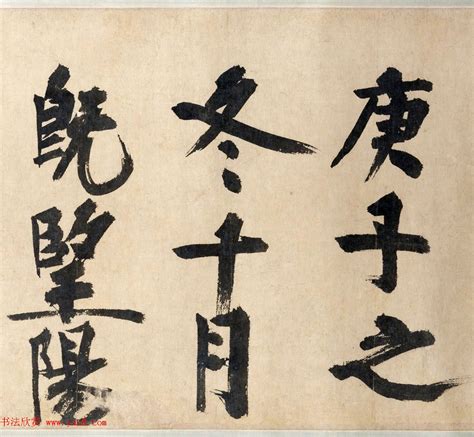 庚子之
冬十月
既望陽
书法欣赏